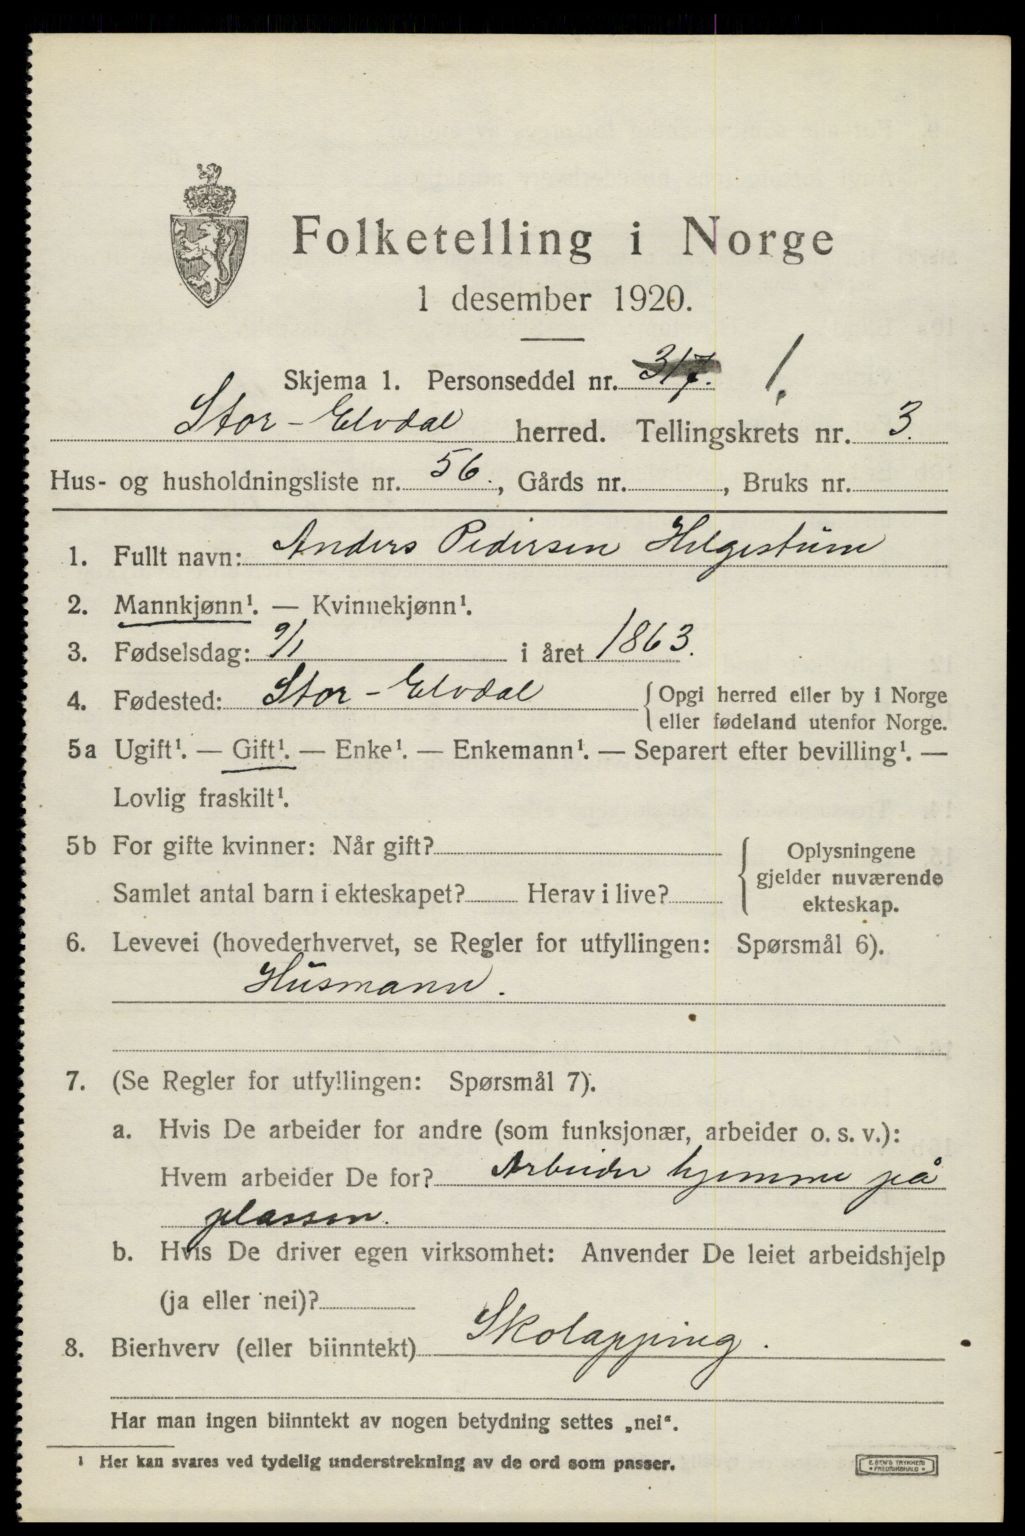 Folketelling i Norge
1 desember 1920.
Skjema 1. Personseddel nr. 317. 1.
Stor-Elvdal herred. Tellingskrets nr. 3.
Hus- og husholdningsliste nr. 56., Gårds nr. , Bruks nr.
1. Fullt navn: Anders Pedersen Helgestum
2. Mannkjønn¹. — Kvinnekjønn¹.
3. Fødselsdag: 9/1 i året 1863.
4. Fødested: Stor-Elvdal { Opgi herred eller by i Norge
eller fødeland utenfor Norge.
5a Ugift¹. — Gift¹. — Enke¹. — Enkemann¹. — Separert efter bevilling¹. —
Lovlig fraskilt¹.
5b For gifte kvinner: Når gift? { Oplysningene
gjelder nuværende
Samlet antal barn i ekteskapet? Herav i live? ekteskap.
6. Levevei (hovederhvervet, se Regler for utfyllingen: Spørsmål 6).
Husmann.
7. (Se Regler for utfyllingen: Spørsmål 7).
a. Hvis De arbeider for andre (som funksjonær, arbeider o. s. v.):
Hvem arbeider De for? Arbeider hjemme på
plassen.
b. Hvis De driver egen virksomhet: Anvender De leiet arbeidshjelp
(ja eller nei)?
8. Bierhverv (eller biinntekt) Skolapping.
Har man ingen biinntekt av nogen betydning settes „nei“.
¹ Her kan svares ved tydelig understrekning av de ord som passer.